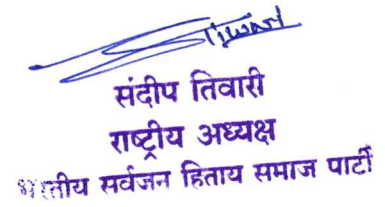 Tiwari
संदीप तिवारी
राष्ट्रीय अध्यक्ष
भारतीय सर्वजन हिताय समाज पार्टी